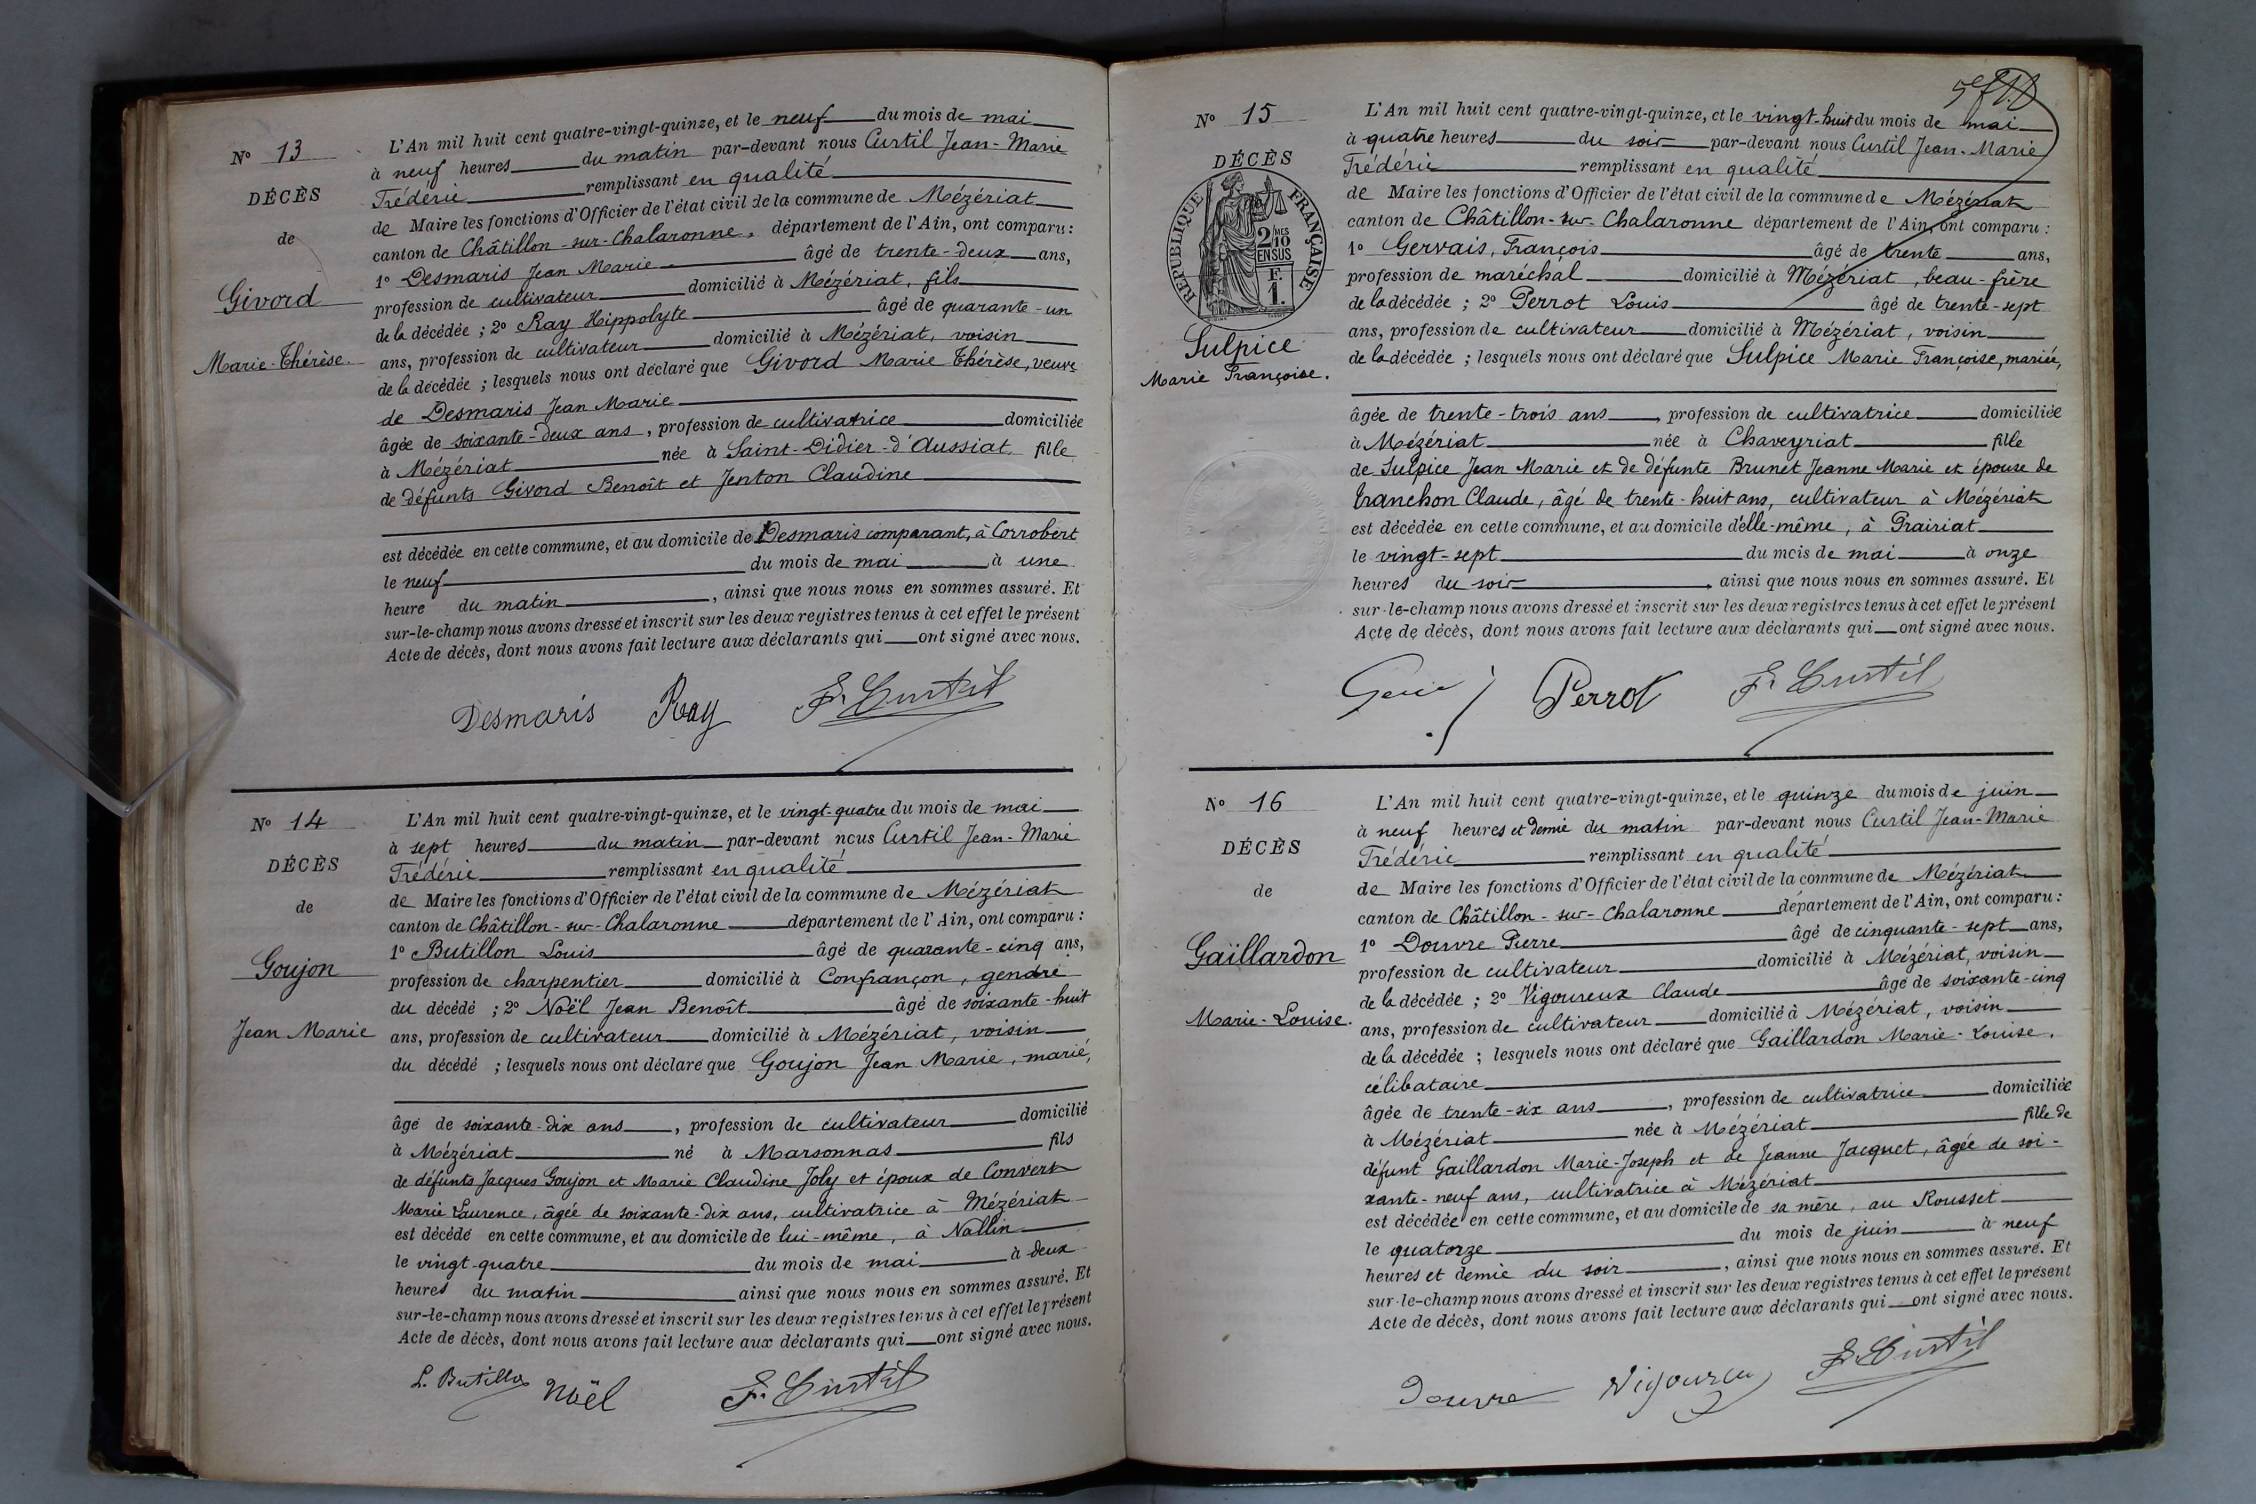 N° 13
DÉCÈS
de
Givord
Marie-Thérèse.
L'An mil huit cent quatre-vingt-quinze, et le neuf du mois de mai
à neuf heures du matin par-devant nous Curtil Jean-Marie
Frédéric remplissant en qualité
de Maire les fonctions d'Officier de l'état civil de la commune de Mézériat
canton de Châtillon-sur-Chalaronne, département de l'Ain, ont comparu :
1° Desmaris Jean Marie âgé de trente-deux ans,
profession de cultivateur domicilié à Mézériat, fils
de la décédée ; 2° Ray Hippolyte âgé de quarante-un
ans, profession de cultivateur domicilié à Mézériat, voisin
de la décédée ; lesquels nous ont déclaré que Givord Marie Thérèse, veuve
de Desmaris Jean Marie
âgée de soixante-deux ans, profession de cultivatrice domiciliée
à Mézériat née à Saint-Didier-d'Aussiat fille
de défunts Givord Benoît et Jenton Claudine
est décédée en cette commune, et au domicile de Desmaris comparant, à Corrobert
le neuf du mois de mai à une
heure du matin, ainsi que nous nous en sommes assuré. Et
sur-le-champ nous avons dressé et inscrit sur les deux registres tenus à cet effet le présent
Acte de décès, dont nous avons fait lecture aux déclarants qui ont signé avec nous.
Desmaris Ray F. Curtil
N° 14
DÉCÈS
de
Goujon
Jean Marie
L'An mil huit cent quatre-vingt-quinze, et le vingt-quatre du mois de mai
à sept heures du matin par-devant nous Curtil Jean-Marie
Frédéric remplissant en qualité
de Maire les fonctions d'Officier de l'état civil de la commune de Mézériat
canton de Châtillon-sur-Chalaronne département de l'Ain, ont comparu :
1° Butillon Louis âgé de quarante-cinq ans,
profession de charpentier domicilié à Confrançon, gendre
du décédé ; 2° Noël Jean Benoît âgé de soixante-huit
ans, profession de cultivateur domicilié à Mézériat, voisin
du décédé ; lesquels nous ont déclaré que Goujon Jean Marie, marié,
âgé de soixante-dix ans, profession de cultivateur domicilié
à Mézériat né à Marsonnas fils
de défunts Jacques Goujon et Marie Claudine Joly et époux de Convert
Marie Laurence, âgée de soixante-dix ans, cultivatrice à Mézériat
est décédé en cette commune, et au domicile de lui-même, à Nallin
le vingt-quatre du mois de mai à deux
heures du matin ainsi que nous nous en sommes assuré. Et
sur-le-champ nous avons dressé et inscrit sur les deux registres tenus à cet effet le présent
Acte de décès, dont nous avons fait lecture aux déclarants qui ont signé avec nous.
L. Butillon Noël F. Curtil
N° 15
DÉCÈS
RÉPUBLIQUE FRANÇAISE
2/10 MES
EN SUS
F.
1.
Sulpice
Marie Françoise.
L'An mil huit cent quatre-vingt-quinze, et le vingt-huit du mois de mai
à quatre heures du soir par-devant nous Curtil Jean-Marie
Frédéric remplissant en qualité
de Maire les fonctions d'Officier de l'état civil de la commune de Mézériat
canton de Châtillon-sur-Chalaronne département de l'Ain, ont comparu :
1° Gervais, François âgé de trente ans,
profession de maréchal domicilié à Mézériat, beau-frère
de la décédée ; 2° Perrot Louis âgé de trente-sept
ans, profession de cultivateur domicilié à Mézériat, voisin
de la décédée ; lesquels nous ont déclaré que Sulpice Marie Françoise, mariée,
âgée de trente-trois ans, profession de cultivatrice domiciliée
à Mézériat née à Chaveyriat fille
de Sulpice Jean Marie et de défunte Brunet Jeanne Marie et épouse de
Tranchon Claude, âgé de trente-huit ans, cultivateur à Mézériat
est décédée en cette commune, et au domicile d'elle-même, à Prairiat
le vingt-sept du mois de mai à onze
heures du soir, ainsi que nous nous en sommes assuré. Et
sur-le-champ nous avons dressé et inscrit sur les deux registres tenus à cet effet le présent
Acte de décès, dont nous avons fait lecture aux déclarants qui ont signé avec nous.
Perrot F. Curtil
N° 16
DÉCÈS
de
Gaïllardon
Marie-Louise.
L'An mil huit cent quatre-vingt-quinze, et le quinze du mois de juin
à neuf heures et demie du matin par-devant nous Curtil Jean-Marie
Frédéric remplissant en qualité
de Maire les fonctions d'Officier de l'état civil de la commune de Mézériat
canton de Châtillon-sur-Chalaronne département de l'Ain, ont comparu :
1° Douvre Pierre âgé de cinquante-sept ans,
profession de cultivateur domicilié à Mézériat, voisin
de la décédée ; 2° Vigoureux Claude âgé de soixante-cinq
ans, profession de cultivateur domicilié à Mézériat, voisin
de la décédée ; lesquels nous ont déclaré que Gaillardon Marie-Louise,
célibataire
âgée de trente-six ans, profession de cultivatrice domiciliée
à Mézériat née à Mézériat fille de
défunt Gaillardon Marie-Joseph et de Jeanne Jacquet, âgée de soi-
xante-neuf ans, cultivatrice à Mézériat
est décédée en cette commune, et au domicile de sa mère, au Rousset
le quatorze du mois de juin à neuf
heures et demie du soir, ainsi que nous nous en sommes assuré. Et
sur-le-champ nous avons dressé et inscrit sur les deux registres tenus à cet effet le présent
Acte de décès, dont nous avons fait lecture aux déclarants qui ont signé avec nous.
Douvre Vigoureux F. Curtil